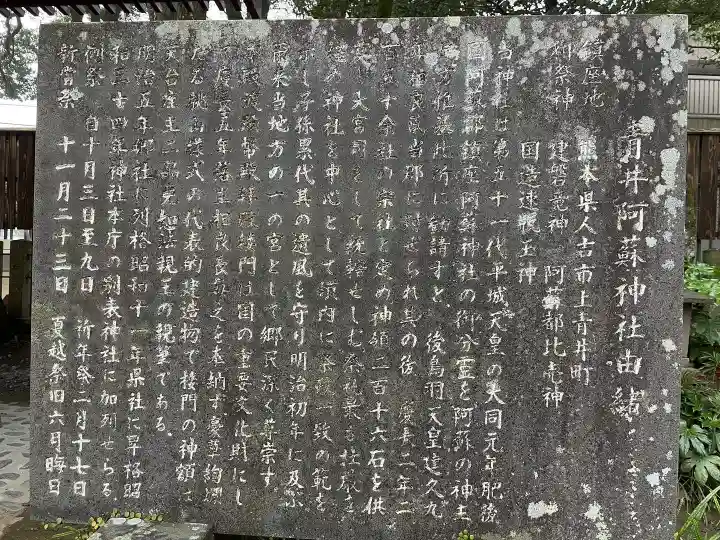 青井阿蘇神社由緒
鎮座地 熊本県人吉市上青井町
御祭神 建磐竜神 阿蘇都比売神
国造速瓶玉神
当神社は第五十一代平城天皇の大同元年肥後
国阿蘇郡鎮座阿蘇神社の御分霊を阿蘇の神主
此所に勧請すと、後鳥羽天皇建久九
当郡に封せられ其の後、慶長二年二
余社の宗社と定め神領二百十六石を供
大宮司をして統轄せしむ。
神社を中心として領内に祭政一致の範を
子孫累代其の遺風を守り明治初年に及ぶ
爾来当地方の一の宮として郷民深く尊崇す。
楼門は国の重要文化財にし
慶長 之を奉納す豪華絢爛
桃山様式の代表的建造物で楼門の神額は
天台座主二品 法親王の親筆である。
明治五年郷社に列格昭和十一年県社に昇格昭
和三十四年神社本庁の別表神社に加列せらる
例祭 自十月三日至九日 祈年祭二月十七日
新嘗祭 十一月二十三日 夏越祭旧六月晦日